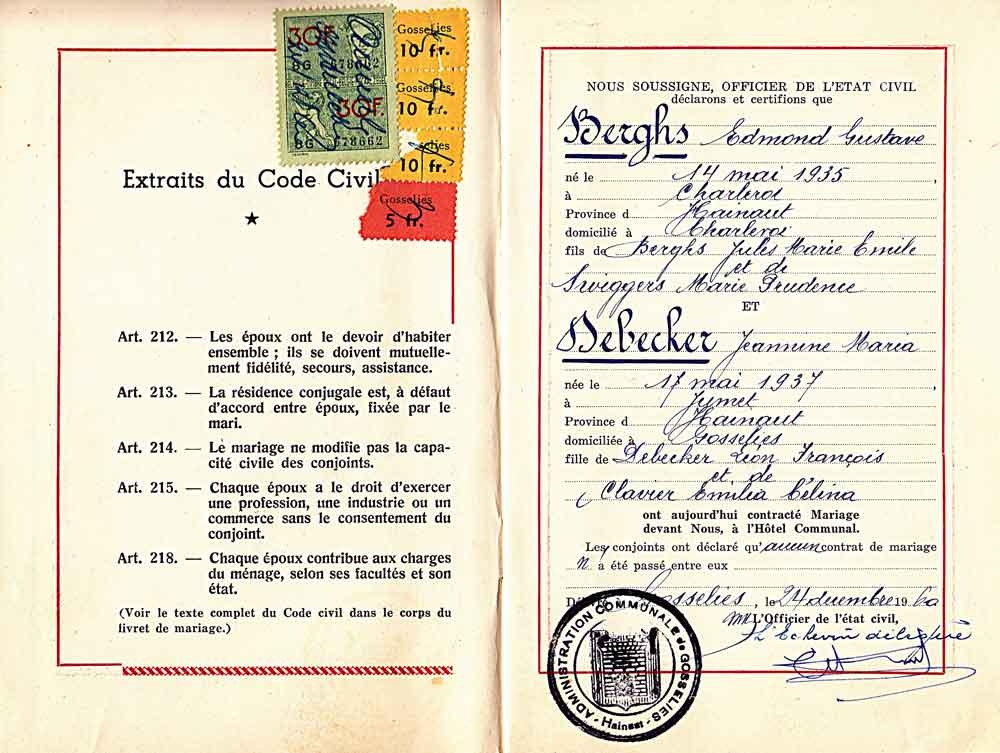 30F
BG 678662
30F.
BG 678662
Gosselies
10 fr.
Gosselies
10 fr.
Gosselies
10 fr.
Gosselies
5 fr.
Extraits du Code Civil
Art. 212. — Les époux ont le devoir d'habiter
ensemble ; ils se doivent mutuelle-
ment fidélité, secours, assistance.
Art. 213. — La résidence conjugale est, à défaut
d'accord entre époux, fixée par le
mari.
Art. 214. — Le mariage ne modifie pas la capa-
cité civile des conjoints.
Art. 215. — Chaque époux a le droit d'exercer
une profession, une industrie ou un
commerce sans le consentement du
conjoint.
Art. 218. — Chaque époux contribue aux charges
du ménage, selon ses facultés et son
état.
(Voir le texte complet du Code civil dans le corps du
livret de mariage.)
NOUS SOUSSIGNE, OFFICIER DE L'ETAT CIVIL
déclarons et certifions que
Berghs Edmond Gustave
né le 14 mai 1935
à Charleroi
Province d Hainaut
domicilié à Charleroi
fils de Berghs Jules Marie Emile
et de
Swiggers Marie Prudence
ET
Debecker Jeannine Maria
née le 17 mai 1937
à Jumet
Province d Hainaut
domiciliée à Gosselies
fille de Debecker Léon François
et de
Clavier Emilia Célina
ont aujourd'hui contracté Mariage
devant Nous, à l'Hôtel Communal.
Les conjoints ont déclaré qu'aucun contrat de mariage
n'a été passé entre eux
Gosselies, le 24 décembre 1960
L'Officier de l'état civil,
L'Echevin délégué
ADMINISTRATION COMMUNALE de GOSSELIES
- Hainaut -